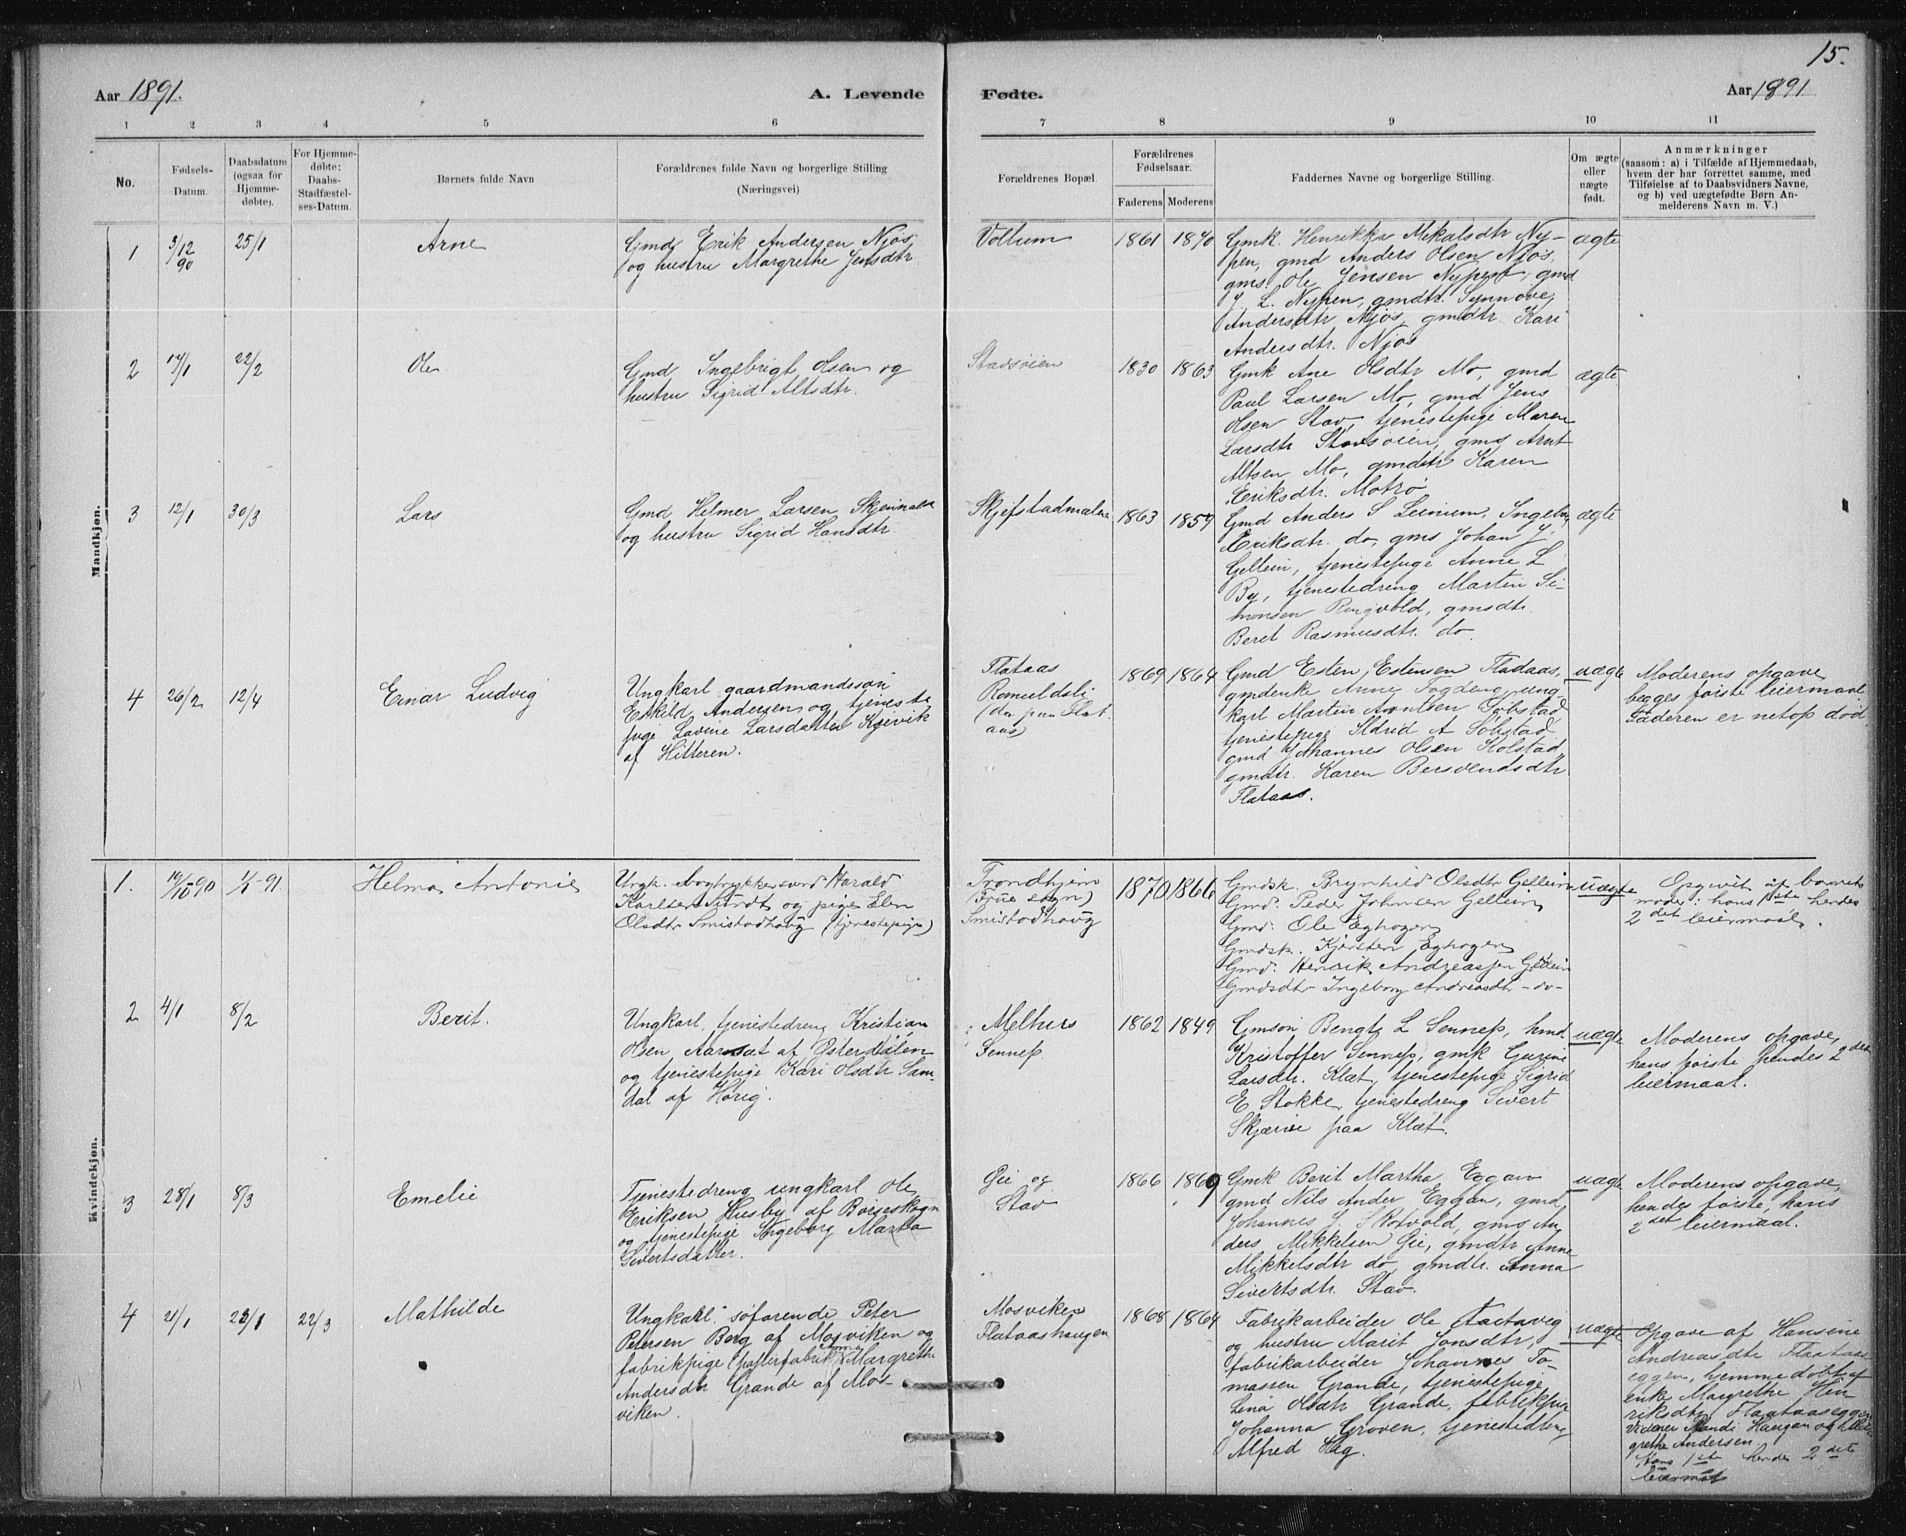 15.
Aar 1891.
A. Levende
Fødte.
Aar 1891
1 2 3 4 5 6 7 8 9 10 11
No.
Fødsels-
Datum.
Daabsdatum
(ogsaa for
Hjemme-
døbte).
For Hjemme-
døbte:
Daabs-
Stadfæstel-
ses-Datum.
Barnets fulde Navn
Forældrenes fulde Navn og borgerlige Stilling
(Næringsvei)
Forældrenes Bopæl.
Forældrenes
Fødselsaar.
Faderens Moderens
Faddernes Navne og borgerlige Stilling.
Om ægte
eller
uægte
født.
Anmærkninger
(saasom: a) i Tilfælde af Hjemmedaab,
hvem der har forrettet samme, med
Tilføielse af to Daabsvidners Navne,
og b) ved uægtefødte Børn An-
melderens Navn m. V.)
Mandkjøn.
1
3/12
90
25/1
Arne
Gmd Erik Andersen Njøs
og hustru Margrethe Jensdtr
1861
Gmk. Henrikka Mikalsdtr Ny-
pen, gmd Anders Olsen Njøs,
gms Ole Jensen Nypen, gmd
J. L. Nypen, gmdtr. Synnøve
Andersdtr Njøs, gmdtr Kari
Andersdtr. Njøs
ægte
2
22/2
Ole
Gmd Ingebrigt Olsen og
hustru Sigrid Altsdtr.
Stavsøien
1830
1863
Gmk Ane Olsdtr Mo, gmd
Paul Larsen Mo, gmd Jens
Olsen Stav, tjenestepige Maren
Larsdtr Stavsøien, gms Arnt
Altsen Mo, gmdtr Karen
Eriksdtr. Motrø
ægte
3
12/1
30/3
Lars
Gmd Helmer Larsen
og hustru Sigrid Hansdtr
1863
1859
Gmd Anders S Leinum, Ingebor
Eriksdtr. do, gms Johan J.
Gellein, tjenestepige Anne L
By, tjenestedreng Martin Si-
monsen Ringvold, gmsdtr.
Beret Rasmusdtr. do
ægte
4
26/2
12/4
Einar Ludvig
Ungkarl gaardmandssøn
Eskild Andersen og tjeneste
pige Lavine Larsdatter Kjevik
af Hitteren.
Flataas
Romuldsli
(der paa Flat
aas)
1869
1864
Gmd Esten Estensen Fladaas,
gmdenke Anne ung-
karl Martin Solstad
tjenestepige Ildrid A Solstad
gmd Johannes Olsen Kolstad,
gmdtr. Karen Bersvendsdtr
Flataas.
uægte
Moderens opgave,
begges første leiermaal
Faderen er netop død
Kvindekjøn.
1.
19/10 90
1/5-91
Helma Antonie
Ungk. Harald
Karlsen og pige Elen
Olsdtr Smistadhaug (tjenestepige)
Trondhjem
(Frue sogn)
Smistadhaug
1870
1866
Gmdsk. Brynhild Olsdtr Gellein
Gmd: Peder Johnsen Gellein
Gmd: Ole Eghogen
Gmdsk. Kjersten Eghogen
Gmd: Henrik Andreassen Gellein
Gmdsdtr Ingeborg Andreasdtr -do-
uægte
Opgivet af barnets
moder: hans 1ste hendes
2det leiermaal.
2
4/1
8/2
Berit.
Ungkarl, tjenestedreng Kristian
Olsen Aarset af Østerdalen
og tjenestepige Kari Olsdtr Sam-
dal af Hørig.
Melhus
Sennep
1862
1849
Gmsøn Bengt L Sennep, hmd
Kristoffer Sennep, gmk Gurine
Larsdtr. Klæt, tjenestepige Sigrid
E Stokke, tjenestedreng Sivert
Skjærve paa Klæt.
uægte
Moderens opgave,
hans første hendes 2det
leiermaal.
3
28/1
8/3
Emelie
Tjenestedreng ungkarl Ole
Eriksen Husby af Børseskogn
og tjenestepige Ingeborg Marta
Sivertsdatter.
Gie og
Stav
1866
1869
Gmk Berit Martha Eggan
gmd Nils Ander Eggan, gmd
Johannes J. Skotvold, gms An-
ders Mikkelsen Gie, gmdtr Anne
Mikkelsdtr do, gmdtr. Anna
Sivertsdtr. Stav.
uægte
Moderens opgave,
hendes første, hans
2det leiermaal.
4
21/1
23/1
22/3
Mathilde
Ungkarl søfarende Peter
Petersen Berg af Mosviken og
fabrikpige (papirfabrik) Anne Margrethe
Andersdtr Grande af Mos-
viken.
Mosviken
Flataashaugen
1868
1864
Fabrikarbeider Ole
og hustru Marit Jonsdtr,
fabrikarbeider Johannes To-
massen Grande, tjenestepige
Lina Olsdtr Grande, fabrikpige
Johanna Groven, tjenestedreng
Alfred Hag.
uægte
Opgave af Hansine
Andreasdtr Flaataas-
eggen, hjemmedøbt af
enke Margrethe Hen-
riksdtr Flaataaseggen
vidner Randi Haugan og Mar-
grethe Andersen.
Hans 1ste hendes 2det
leiermaal